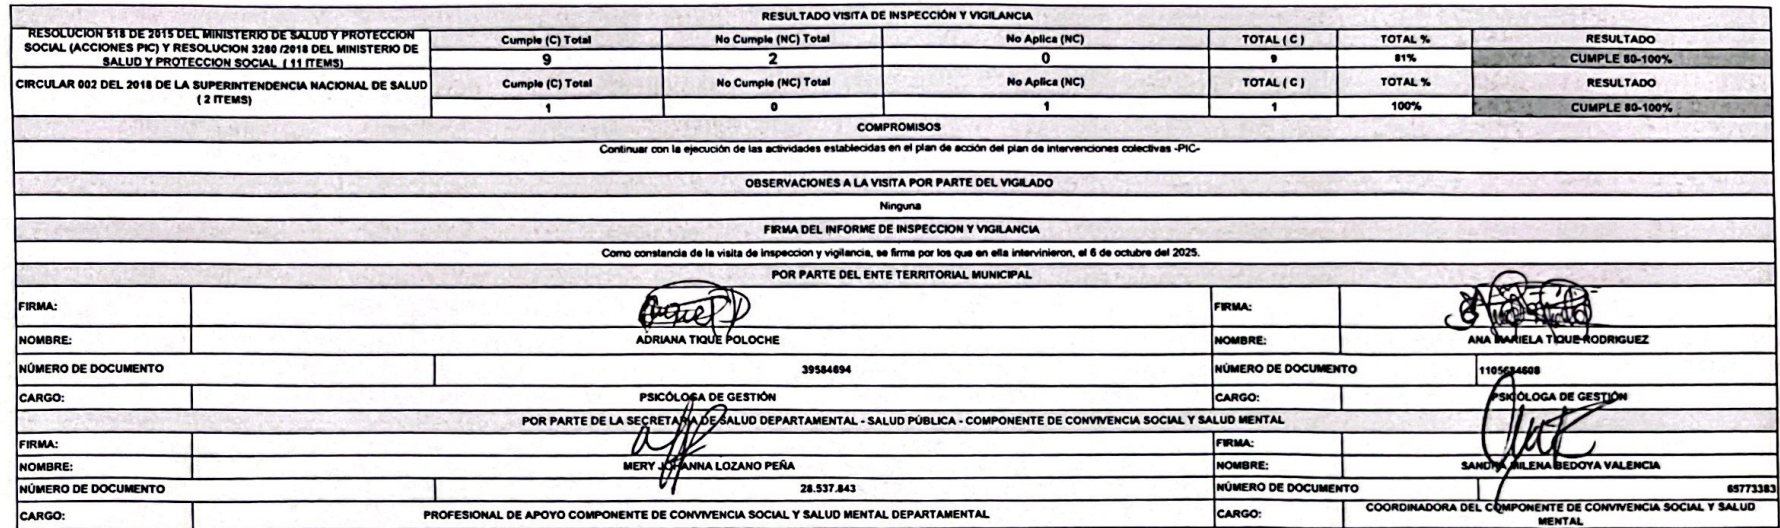 RESULTADO VISITA DE INSPECCIÓN Y VIGILANCIA
RESOLUCION 518 DE 2015 DEL MINISTERIO DE SALUD Y PROTECCION
SOCIAL (ACCIONES PIC) Y RESOLUCION 3280 /2018 DEL MINISTERIO DE
SALUD Y PROTECCION SOCIAL ( 11 ITEMS)
Cumple (C) Total No Cumple (NC) Total No Aplica (NC) TOTAL ( C ) TOTAL % RESULTADO
9 2 0 9 81% CUMPLE 80-100%
CIRCULAR 002 DEL 2018 DE LA SUPERINTENDENCIA NACIONAL DE SALUD
( 2 ITEMS)
Cumple (C) Total No Cumple (NC) Total No Aplica (NC) TOTAL ( C ) TOTAL % RESULTADO
1 0 1 1 100% CUMPLE 80-100%
COMPROMISOS
Continuar con la ejecución de las actividades establecidas en el plan de acción del plan de intervenciones colectivas -PIC-
OBSERVACIONES A LA VISITA POR PARTE DEL VIGILADO
Ninguna
FIRMA DEL INFORME DE INSPECCION Y VIGILANCIA
Como constancia de la visita de inspeccion y vigilancia, se firma por los que en ella intervinieron, el 6 de octubre del 2025.
POR PARTE DEL ENTE TERRITORIAL MUNICIPAL
FIRMA: FIRMA:
NOMBRE: ADRIANA TIQUE POLOCHE NOMBRE: ANA MARIELA TIQUE RODRIGUEZ
NÚMERO DE DOCUMENTO 39584694 NÚMERO DE DOCUMENTO 1105684608
CARGO: PSICÓLOGA DE GESTIÓN CARGO: PSICÓLOGA DE GESTIÓN
POR PARTE DE LA SECRETARIA DE SALUD DEPARTAMENTAL - SALUD PÚBLICA - COMPONENTE DE CONVIVENCIA SOCIAL Y SALUD MENTAL
FIRMA: FIRMA:
NOMBRE: MERY JOHANNA LOZANO PEÑA NOMBRE: SANDRA MILENA BEDOYA VALENCIA
NÚMERO DE DOCUMENTO 28.537.843 NÚMERO DE DOCUMENTO 65773383
CARGO: PROFESIONAL DE APOYO COMPONENTE DE CONVIVENCIA SOCIAL Y SALUD MENTAL DEPARTAMENTAL CARGO: COORDINADORA DEL COMPONENTE DE CONVIVENCIA SOCIAL Y SALUD
MENTAL